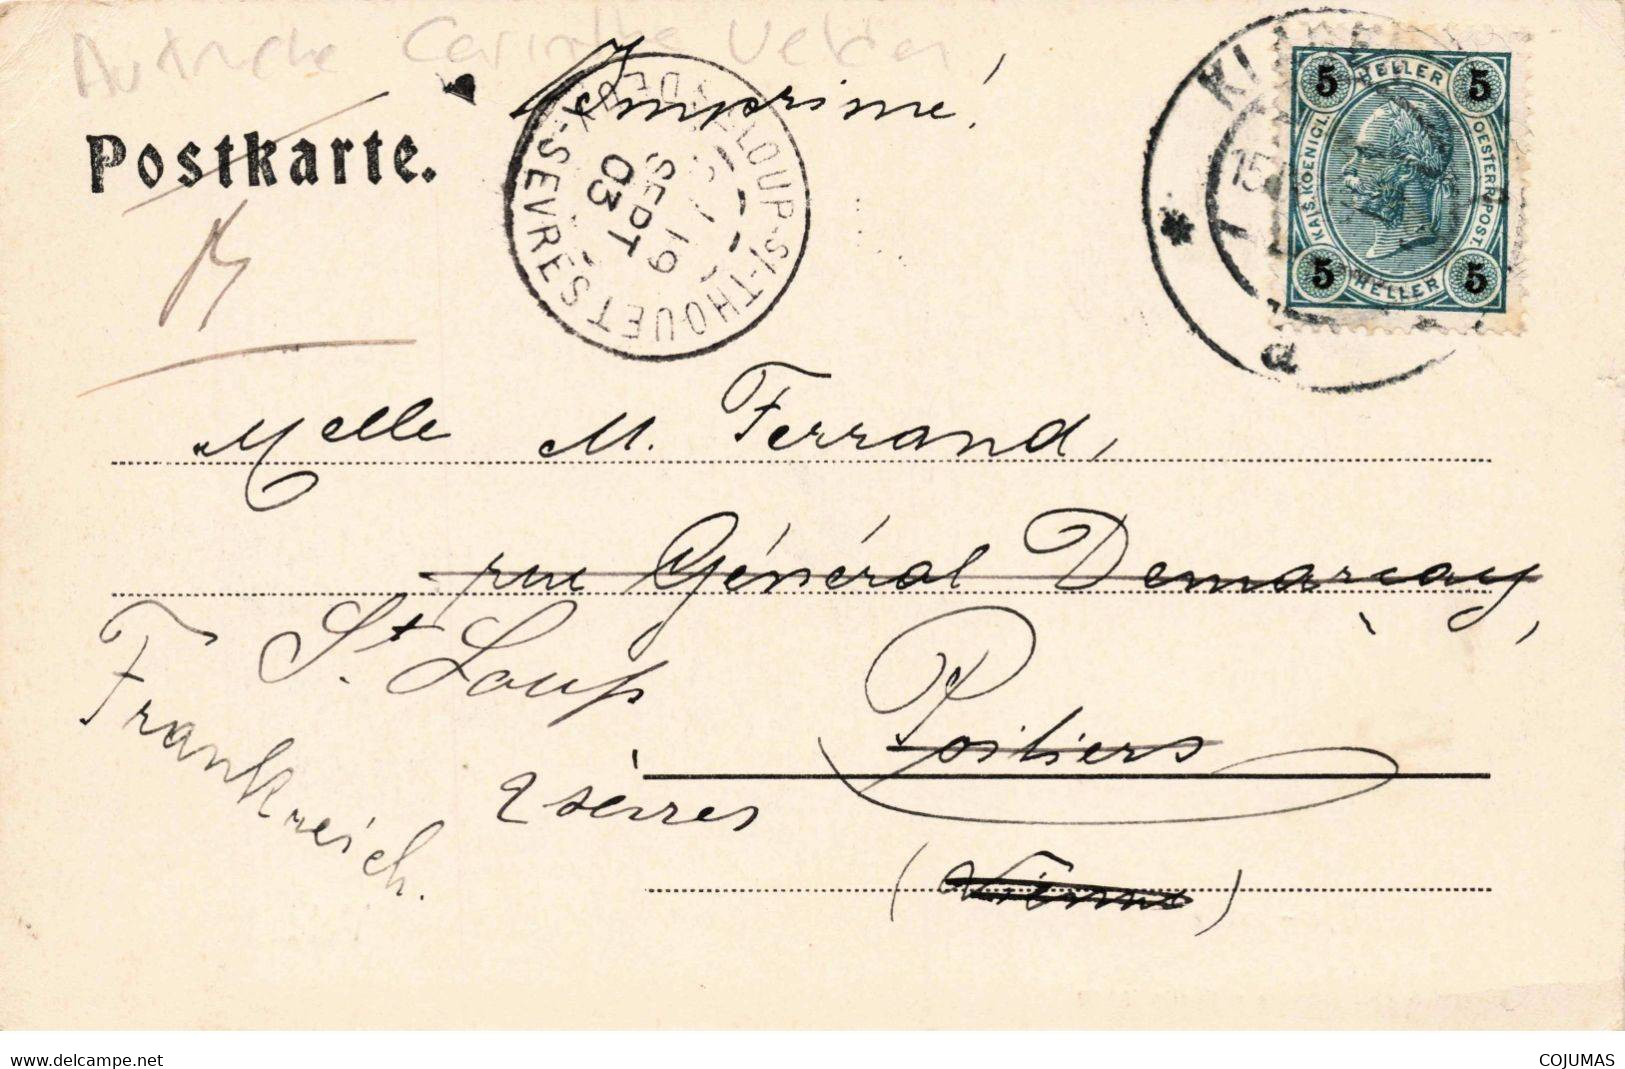 Autriche Carinthie Velden
Imprimé!
Postkarte.
ST LOUP-S/-THOUET
DEUX-SEVRES
19
SEPT
03
KLAGEN
15
a
5 HELLER 5
KAIS. KOENIGL. OESTERR. POST.
5 HELLER 5
Melle M. Ferrand,
rue Général Demarçay,
St. Loup
Frankreich.
Poitiers
2 sèvres
(Vienne)
www.delcampe.net
COJUMAS